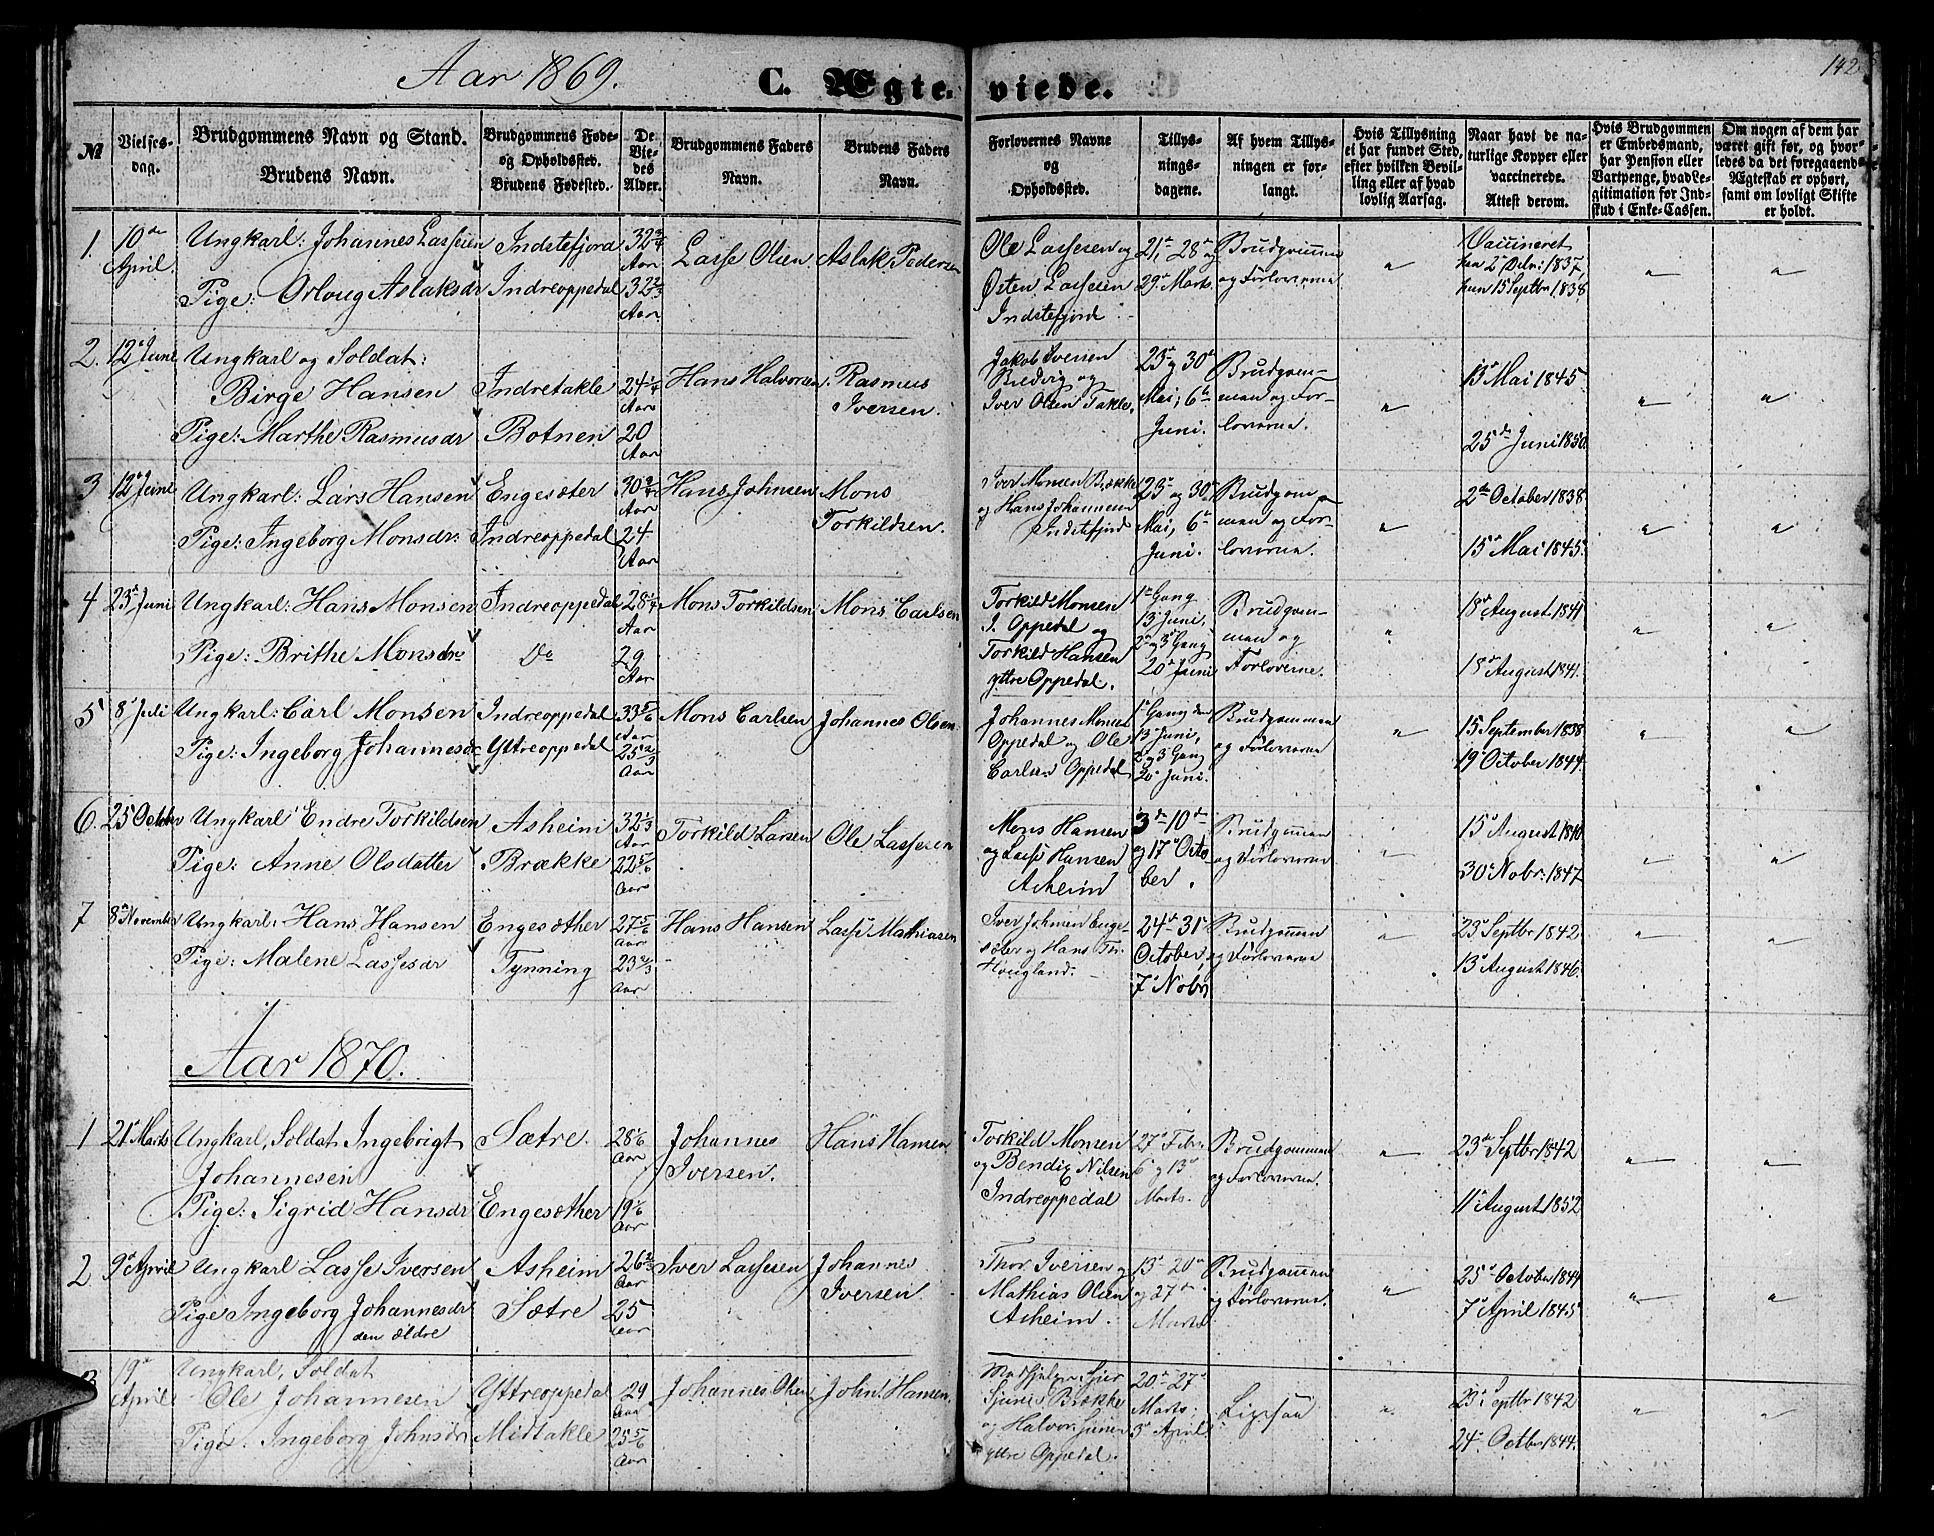 Aar 1869.
C. Ægteviede.
142
№
Vielses-
dag.
Brudgommens Navn og Stand.
Brudens Navn.
Brudgommens Føde-
og Opholdssted.
Brudens Fødested.
De
Vie-
des
Alder.
Brudgommens Faders
Navn.
Brudens Faders
Navn.
Forlovernes Navne
og
Opholdssted.
Tillys-
nings-
dagene.
Af hvem Tillys-
ningen er for-
langt.
Hvis Tillysning
ei har fundet Sted,
efter hvilken Bevil-
ling eller af hvad
lovlig Aarsag.
Naar havt de na-
turlige Kopper eller
vaccinerede.
Attest derom.
Hvis Brudgommen
er Embedsmand,
har Pension eller
Vartpenge, hvad Le-
gitimation for Ind-
skud i Enke-Cassen.
Om nogen af dem har
været gift før, og hvor-
ledes da det foregaaende
Ægteskab er ophørt,
samt om lovligt Skifte
er holdt.
1.
10de
April.
Ungkarl: Johannes Lassesen
Pige: Orloug Aslaksdr
Indstefjord
Indreoppedal
32 3/4
Aar
32 2/3
Aar
Lasse Olsen
Aslak Pedersen
Ole Lassesen og
Østen Lassesen
Indstefjorde
21, 28 og
29 Marts.
Brudgommen
og Forloverne
"
Vaccineret
han 2 Octr: 1837,
hun 15 Septbr 1838
"
"
2.
12 Juni
Ungkarl og Soldat:
Birge Hansen
Pige: Marthe Rasmusdr
Indretakle
Botnen
24 1/4
Aar
20
Aar
Hans Halvorsen
Rasmus
Iversen.
Jakob Iversen
Bredvig og
Iver Olsen Takle.
23 og 30
Mai, 6
Juni.
Brudgom-
man og For-
loverne.
"
13 Mai 1845.
25de Juni 1850.
"
"
3
12 Juni
Ungkarl: Lars Hansen
Pige: Ingeborg Monsdr:
Engesæter
Indreoppedal
30 3/4
Aar
24
Aar
Hans Johnsen
Mons
Torkildsen.
Iver Monsen Brække
og Hans Johannesen
Indstefjord
23 og 30
Mai, 6
Juni.
Brudgom-
man og For-
loverne.
"
2 October 1838.
15 Mai 1845.
"
"
4
23 Juni
Ungkarl: Hans Monsen
Pige: Brithe Monsdr
Indreoppedal
Do
28 1/4
Aar
29
Aar
Mons Torkildsen
Mons Carlsen
Torkild Monsen
I. Oppedal og
Torkild Hansen
yttre Oppedal.
1ste Gang
13 Juni,
2 og 3 Gang
20 Juni
Brudgom-
man og
Forloverne.
"
18 August 1841
18 August 1841.
"
"
5
8 Juli
Ungkarl: Carl Monsen
Pige: Ingeborg Johannesdr
Indreoppedal
Yttreoppedal
33 5/6
Aar
25 2/3
Aar
Mons Carlsen
Johannes Olsen
Johannes Monsen
Oppedal og Ole
Carlsen Oppedal
1 Gang den
13 Juni,
2 og 3 Gang
20 Juni.
Brudgommen
og Forloverne
"
15 September 1838
19 October 1844.
"
"
6.
25 Octobr
Ungkarl Endre Torkildsen
Pige: Anne Olsdatter
Asheim
Brække
32 1/3
Aar
22 5/6
Aar
Torkild Larsen
Ole Lassesen
Mons Hansen
og Lasse Hansen
Asheim
3 10
og 17 Octo
ber.
Brudgommen
og Forloverne
"
15 August 1840
30 Nobr: 1847
"
"
7
8 November
Ungkarl: Hans Hansen
Pige: Malene Lassesdr
Engesæther
Tynning
27 5/6
Aar
23 2/3
Aar
Hans Hansen
Lasse Mathiasen
Iver Johnsen Enge-
sæter og Hans Th:
Hougland.
24 31
October,
7 Nobr
Brudgommen
og Forloverne
"
23 Septbr 1842.
13 August 1846.
"
"
Aar 1870.
1
21 Marts
Ungkarl, Soldat Ingebrigt
Johannesen
Pige: Sigrid Hansdr
Sætre.
Engesæther
28 1/6
Aar
19 1/6
Aar
Johannes
Iversen.
Hans Hansen
Torkild Monsen
og Bendix Nilsen
Indreoppedal
27 Febr.
6 og 13
Marts.
Brudgommen
og Forloverne.
"
23de Septbr 1842
11 August 1852
"
"
2
9 April
Ungkarl Lasse Iversen
Pige Ingeborg Johannesdr
den ældre
Asheim
Sætre
26 2/3
Aar
25
Aar
Iver Lassesen
Johannes
Iversen
Thor Iversen og
Mathias Olsen
Asheim.
13 20
og 27
Marts
Brudgommen
og Forloverne.
"
25 October 1844
7 April 1845
"
"
3
19
April
Ungkarl, Soldat
Ole Johannesen
Pige: Ingeborg Johnsdr
Yttreoppedal
Midtakle
29
Aar
25 5/6
Aar
Johannes Olsen
John Hansen
Brække
og Halvor
yttre Oppedal.
20 27
Marts.
3 April
Ligesaa
"
23 Septbr 1842
24 Octbr 1844.
"
"